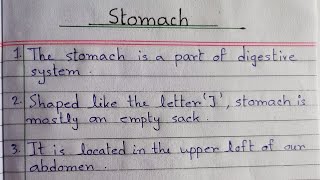 Stomach
1. The stomach is a part of digestive
system.
2. Shaped like the letter 'J', stomach is
mostly an empty sack.
3. It is located in the upper left of our
abdomen.